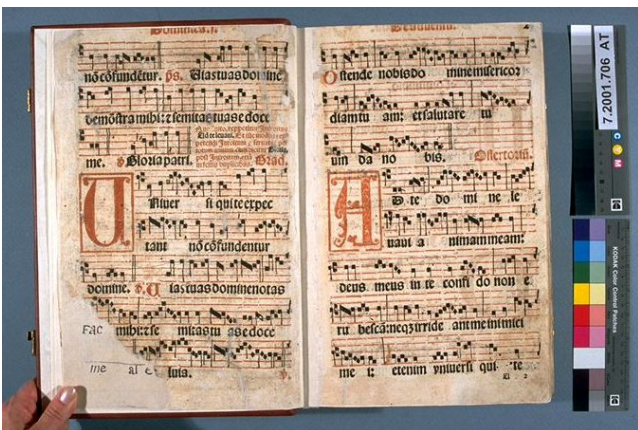 Dominica.j.
nõcõfundẽtur. ps. Uias tuas domine
demõstra mihi: z semitas tuas edoce
me. Gloria patri. Grad.
Univer si qui te expec
tant nõ cõfundentur
domine. Uias tuas domine notas
FAC mihi: z se mitas tu as edoce
me al e luia.
O stende nobis do mine misericoz
diam tu am: et salutare tu
um da no bis. Offertoriũ.
AD te do mi ne le
vaui a nimam meam:
deus meus in te confi do non e
ru bescã: neqz irride ant me inimici
me i: etenim vniuersi qui te
7.2001.706 AT
C Y M
KODAK Color Control Patches